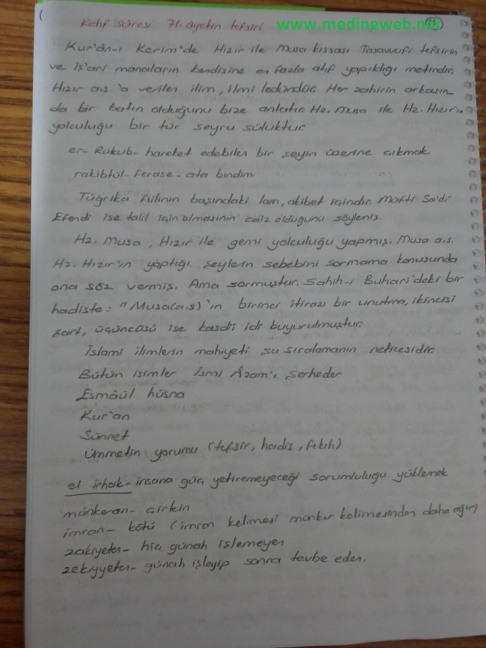 www.medineweb.net
Kehf sûresi 71. ayetin tefsiri
Kur'ân-ı Kerim'de Hızır ile Musa kıssası Tasavvufi tefsirin
ve İş'ari manaların kendisine en fazla atıf yapıldığı metindir.
Hızır a.s 'a verilen ilim, ilmi ledündür. Her zahirin arkasın
da bir batın olduğunu bize anlatır. Hz. Musa ile Hz. Hızır'ın
yolculuğu bir tür seyru sülüktur.
er- Rukub- hareket edebilen bir şeyin üzerine çıkmak
rakibtül- ferase- ata bindim
Tüğrika fiilinin başındaki lam, akibet içindir. Müfti Sa'di
Efendi ise talil için olmasının caiz olduğunu söylemiş.
Hz. Musa, Hızır ile gemi yolculuğu yapmış. Musa a.s.
Hz. Hızır'ın yaptığı şeylerin sebebini sormama konusunda
ona söz vermiş. Ama sormuştur. Sahih-i Buhari'deki bir
hadiste: "Musa(a.s)'ın birinci itirazı bir unutma, ikincisi
şart, üçüncüsü ise kasdi idi buyurulmuştur.
İslami ilimlerin mahiyeti şu sıralamanın neticesidir.
Bütün isimler İsmi Âzam'ı şerheder
Esmâül hüsna
Kur'an
Sünnet
Ümmetin yorumu (tefsir, hadis, fıkıh)
el-irhak- insana güç yetiremeyeceği sorumluluğu yüklemek
münkeran- çirkin
imran- kötü (imran kelimesi münker kelimesinden daha ağır)
zakiyeten- hiç günah işlemeyen
zekiyyeten- günah işleyip sonra tevbe eden.